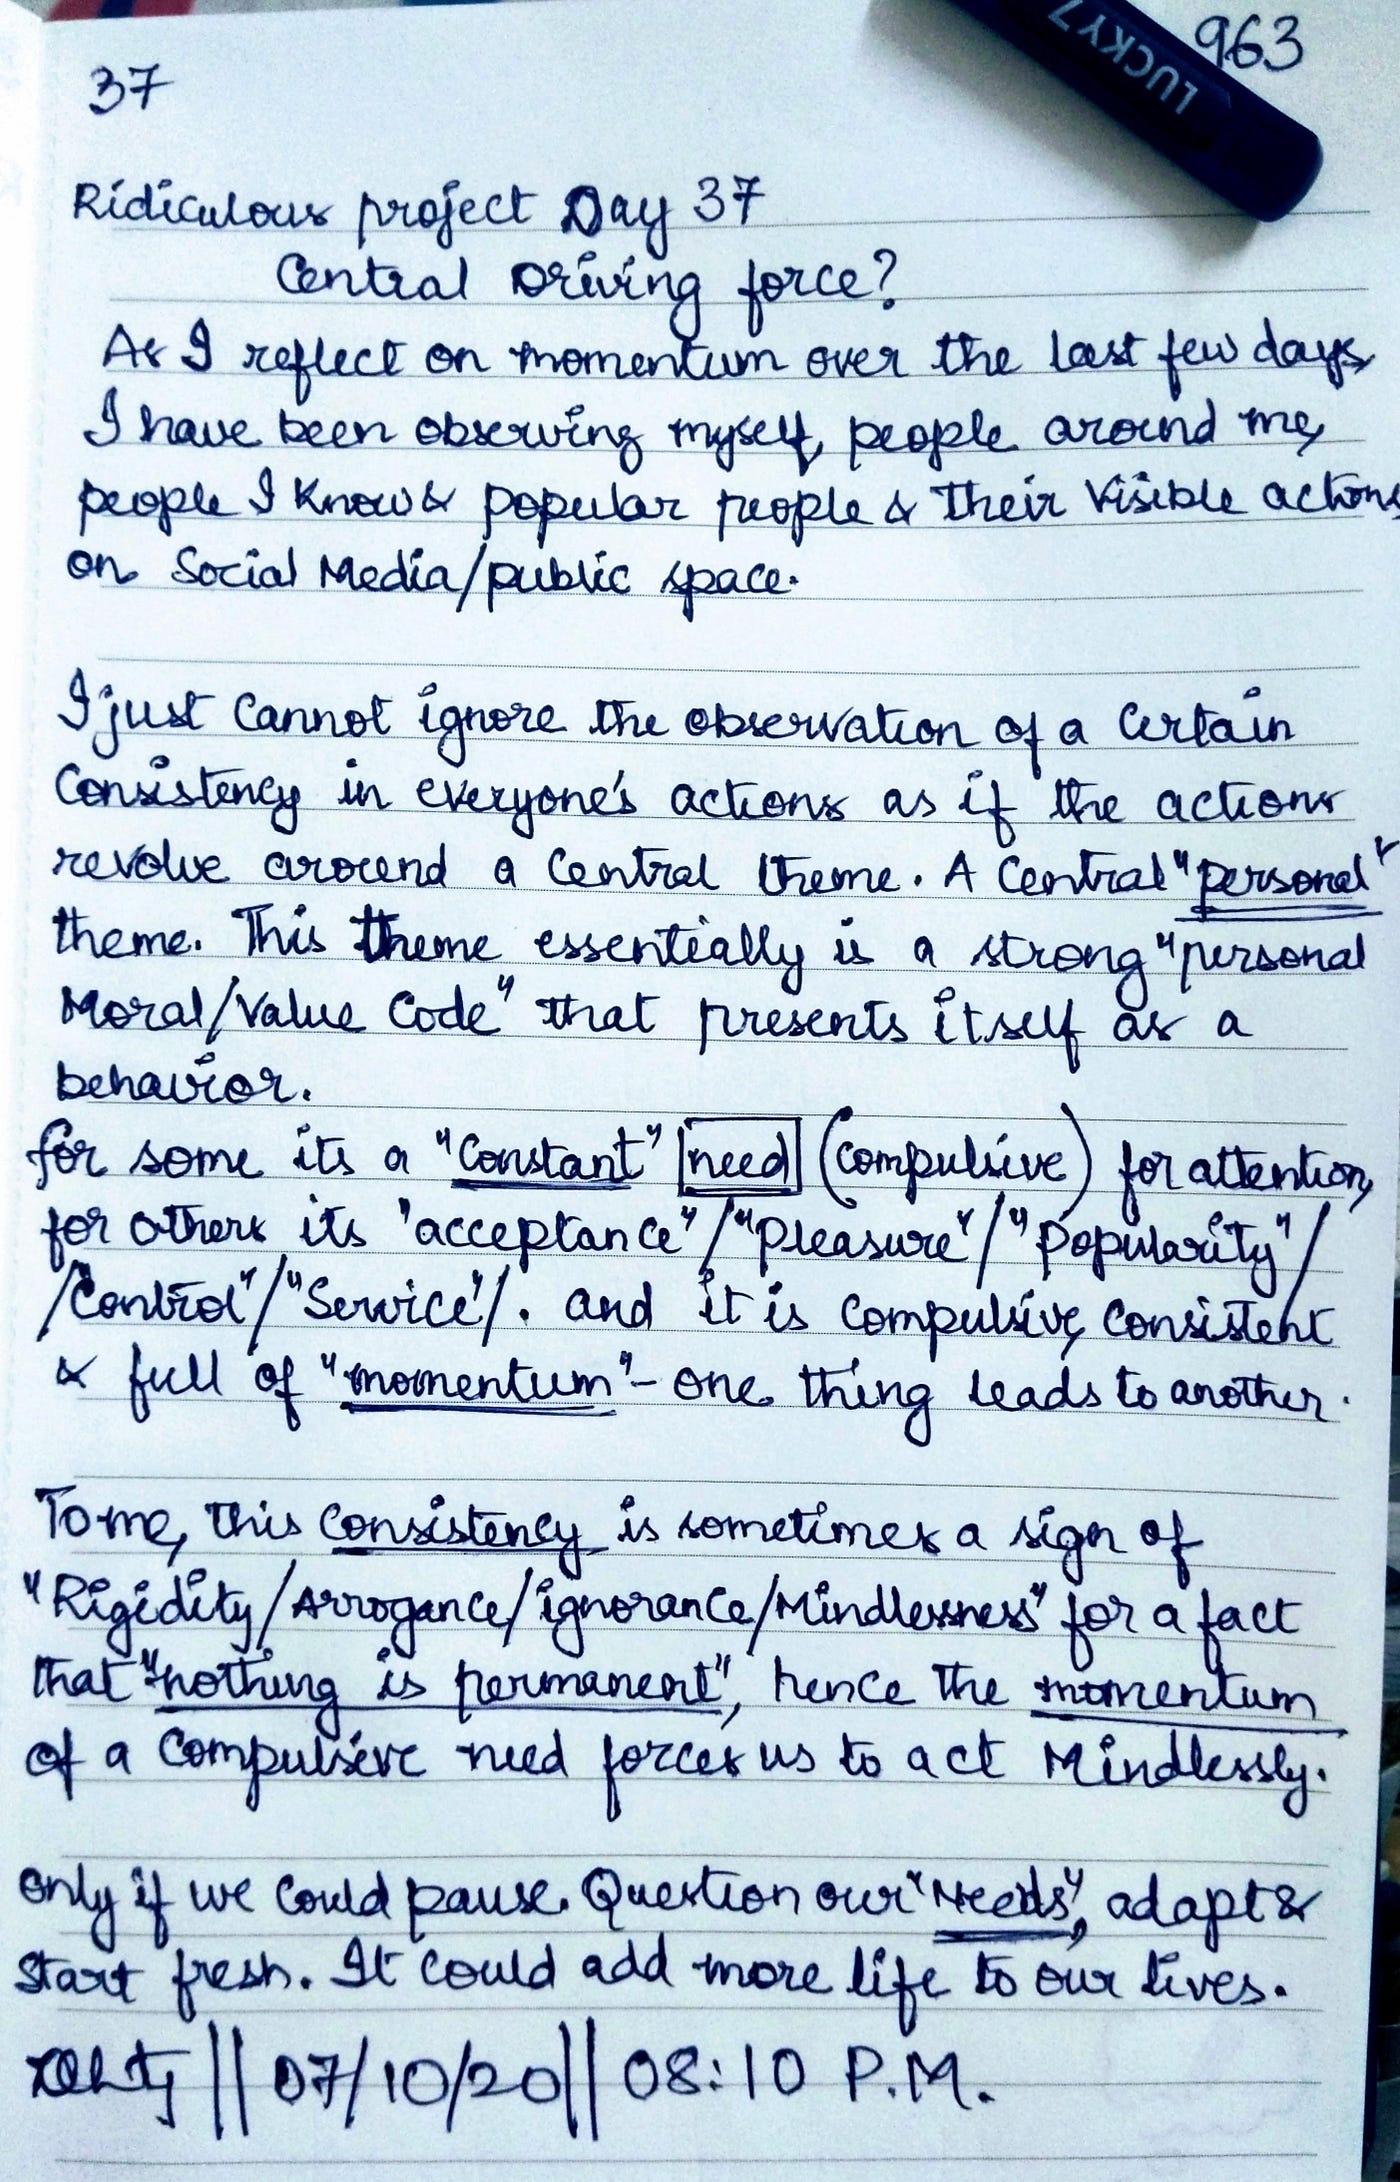 963
LUCKY 7
37
Ridiculous project Day 37
Central Driving force?
As I reflect on momentum over the last few days,
I have been observing myself, people around me,
people I know & popular people & their visible actions
on Social Media/public space.
I just cannot ignore the observation of a certain
Consistency in everyone's actions as if the actions
revolve around a central theme. A Central "personal"
theme. This theme essentially is a strong "personal
Moral/Value Code" that presents itself as a
behavior.
for some its a "Constant" need (compulsive) for attention,
for others its "acceptance"/"Pleasure"/"Popularity"/
/Control"/"Service"/. and it is compulsive, consistent
& full of "momentum" - one thing leads to another.
To me, this consistency is sometimes a sign of
"Rigidity/Arrogance/ignorance/Mindlessness" for a fact
that "nothing is permanent", hence the momentum
of a compulsive need forces us to act Mindlessly.
only if we could pause. Question our "Needs", adapt &
start fresh. It could add more life to our lives.
|| 07/10/20 || 08:10 P.M.